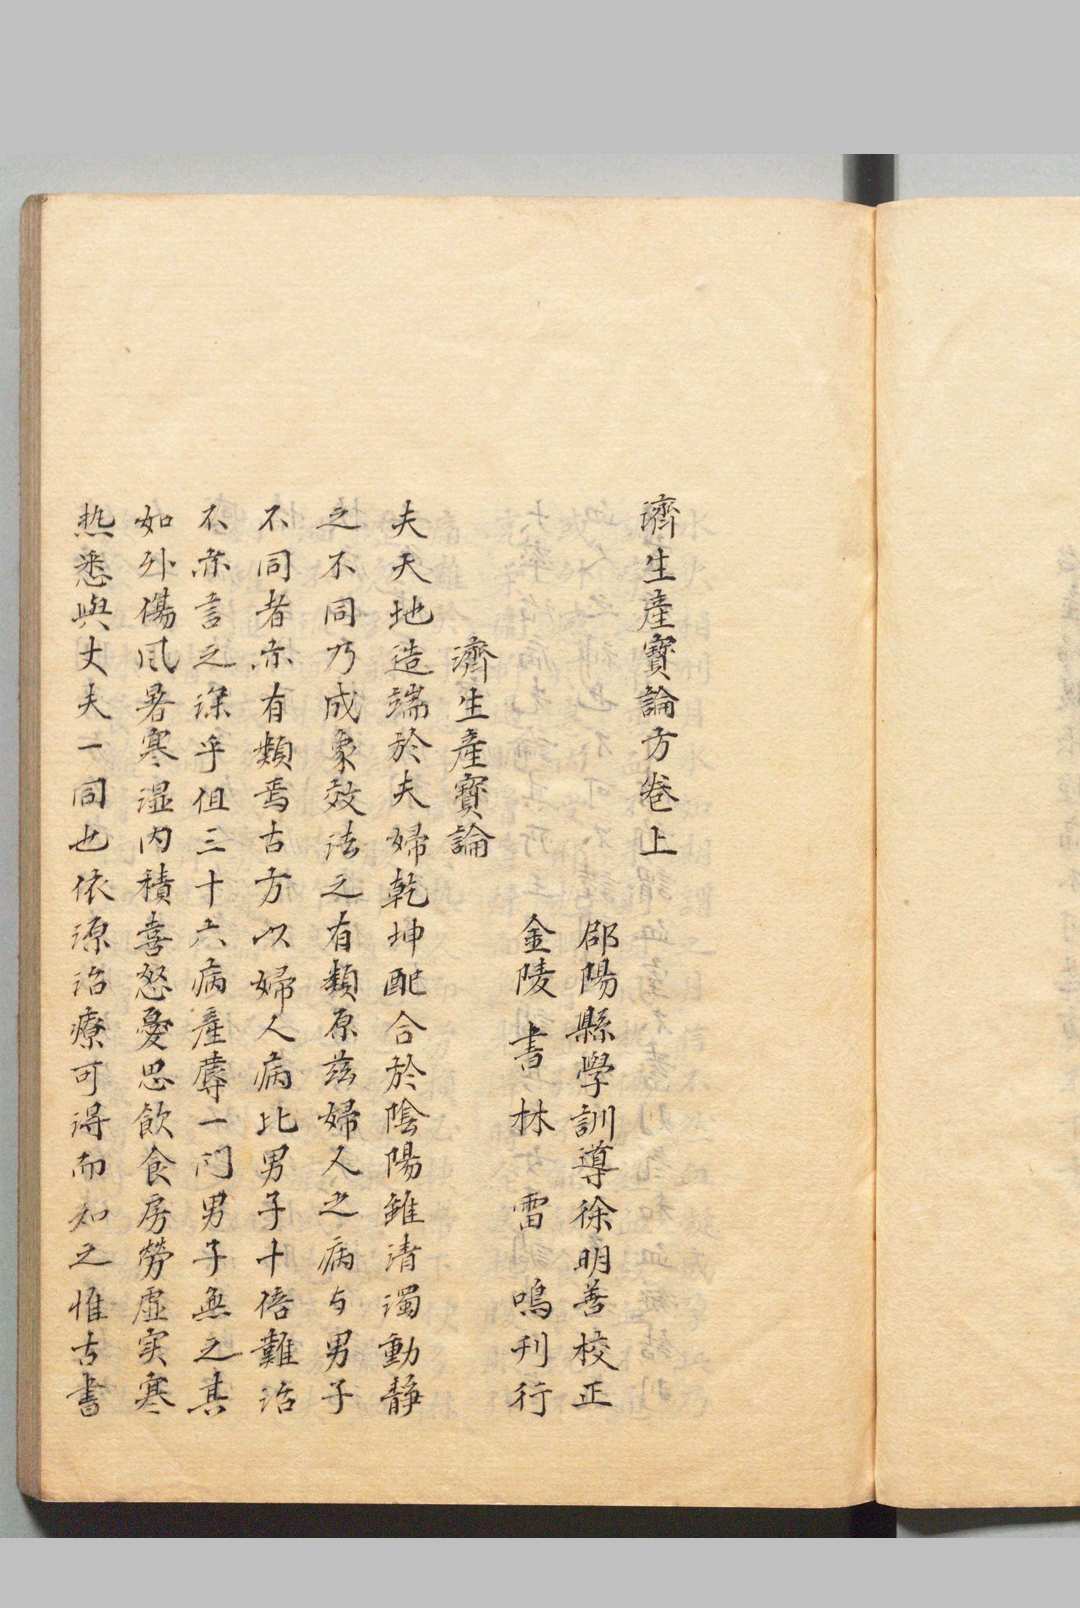 濟生產寶論方卷上
郃陽縣學訓導徐明善校正
金陵書林雷鳴刊行
濟生產寶論
夫天地造端於夫婦乾坤配合於陰陽雖清濁動静
之不同乃成象效法之有類原茲婦人之病与男子
不同者亦有類焉古方以婦人病比男子十倍難治
不亦言之深乎但三十六病產蓐一门男子無之其
如外傷風暑寒湿内積喜怒憂思飲食房勞虛实寒
热悉與丈夫一同也依源治療可得而知之惟古書